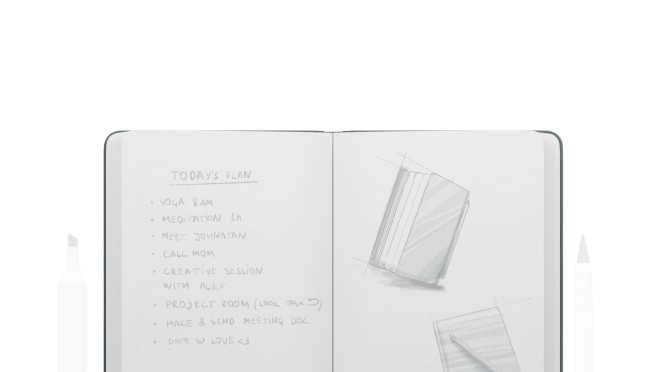 TODAY'S PLAN
• YOGA 8AM
• MEDITATION
• MEET JOHNATAN
• CALL MOM
• CREATIVE SESSION
WITH ALEX
• PROJECT ZOOM (LOOK TASK
• MAKE & SEND MEETING DOC.
• DATE W LOVE <3